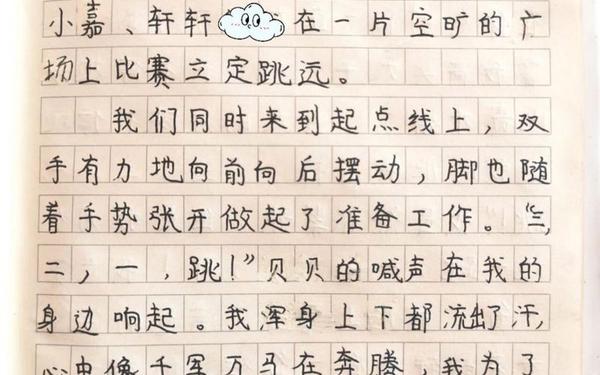 小嘉、轩轩在一片空旷的广
场上比赛立定跳远。
我们同时来到起点线上，双
手有力地向前向后摆动，脚也随
着手势张开做起了准备工作。“三，
二，一，跳！”贝贝的喊声在我的
身边响起。我浑身上下都流出了汗，
心中像千军万马在奔腾，我为了